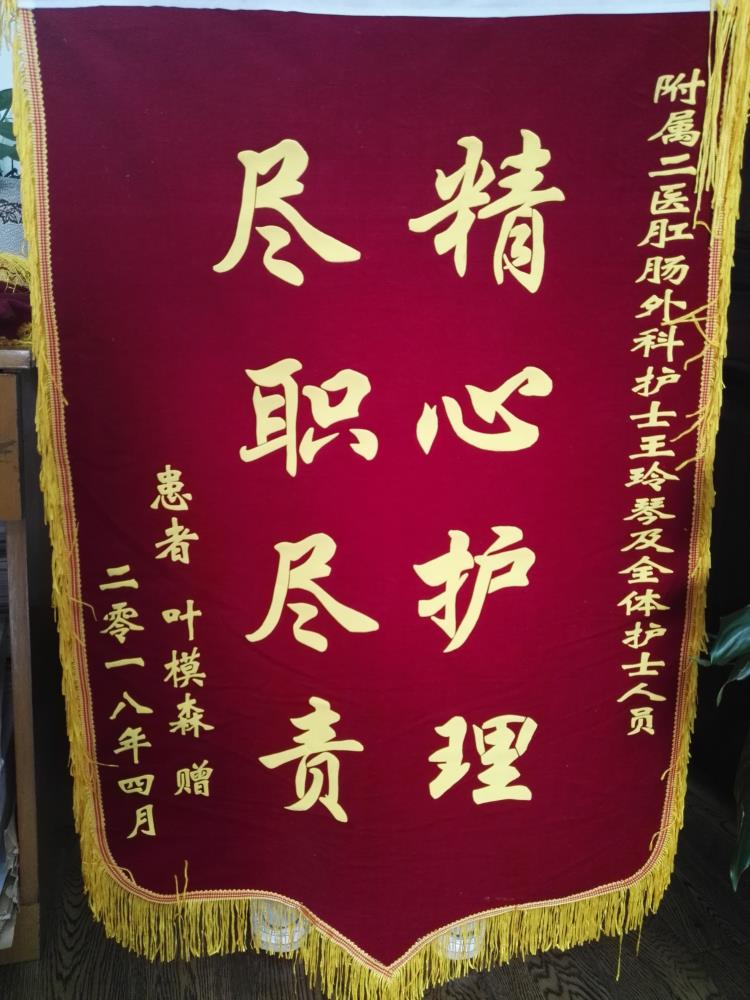 附属二医肛肠外科护士王玲琴及全体护士人员
精心护理
尽职尽责
患者 叶模森 赠
二零一八年四月